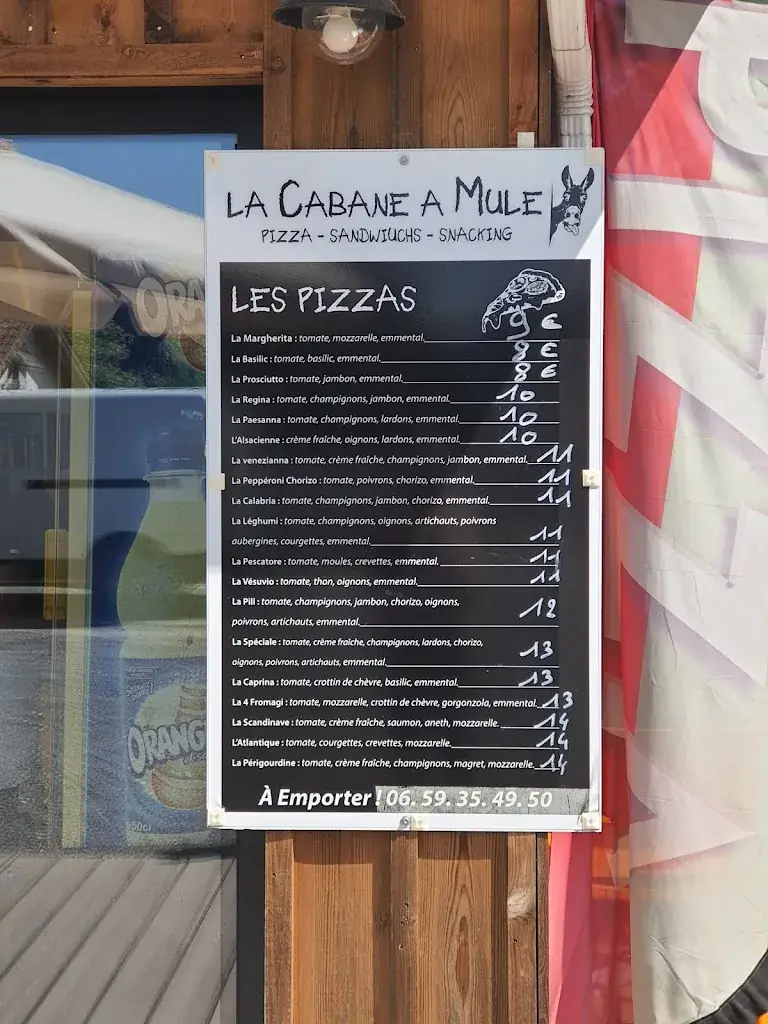 LA CABANE A MULE
PIZZA - SANDWIUCHS - SNACKING
LES PIZZAS
La Margherita : tomate, mozzarelle, emmental. 9 €
La Basilic : tomate, basilic, emmental. 8 €
La Prosciutto : tomate, jambon, emmental. 8 €
La Regina : tomate, champignons, jambon, emmental. 10
La Paesanna : tomate, champignons, lardons, emmental. 10
L'Alsacienne : crème fraîche, oignons, lardons, emmental. 10
La venezianna : tomate, crème fraîche, champignons, jambon, emmental. 11
La Peppéroni Chorizo : tomate, poivrons, chorizo, emmental. 11
La Calabria : tomate, champignons, jambon, chorizo, emmental. 11
La Léghumi : tomate, champignons, oignons, artichauts, poivrons
aubergines, courgettes, emmental. 11
La Pescatore : tomate, moules, crevettes, emmental. 11
La Vésuvio : tomate, thon, oignons, emmental. 11
La Pili : tomate, champignons, jambon, chorizo, oignons,
poivrons, artichauts, emmental. 12
La Spéciale : tomate, crème fraîche, champignons, lardons, chorizo,
oignons, poivrons, artichauts, emmental. 13
La Caprina : tomate, crottin de chèvre, basilic, emmental. 13
La 4 Fromagi : tomate, mozzarelle, crottin de chèvre, gorgonzola, emmental. 13
La Scandinave : tomate, crème fraîche, saumon, aneth, mozzarelle. 14
L'Atlantique : tomate, courgettes, crevettes, mozzarelle. 14
La Périgourdine : tomate, crème fraîche, champignons, magret, mozzarelle. 14
À Emporter ! 06. 59. 35. 49. 50
ORAN
ORANG
950cl